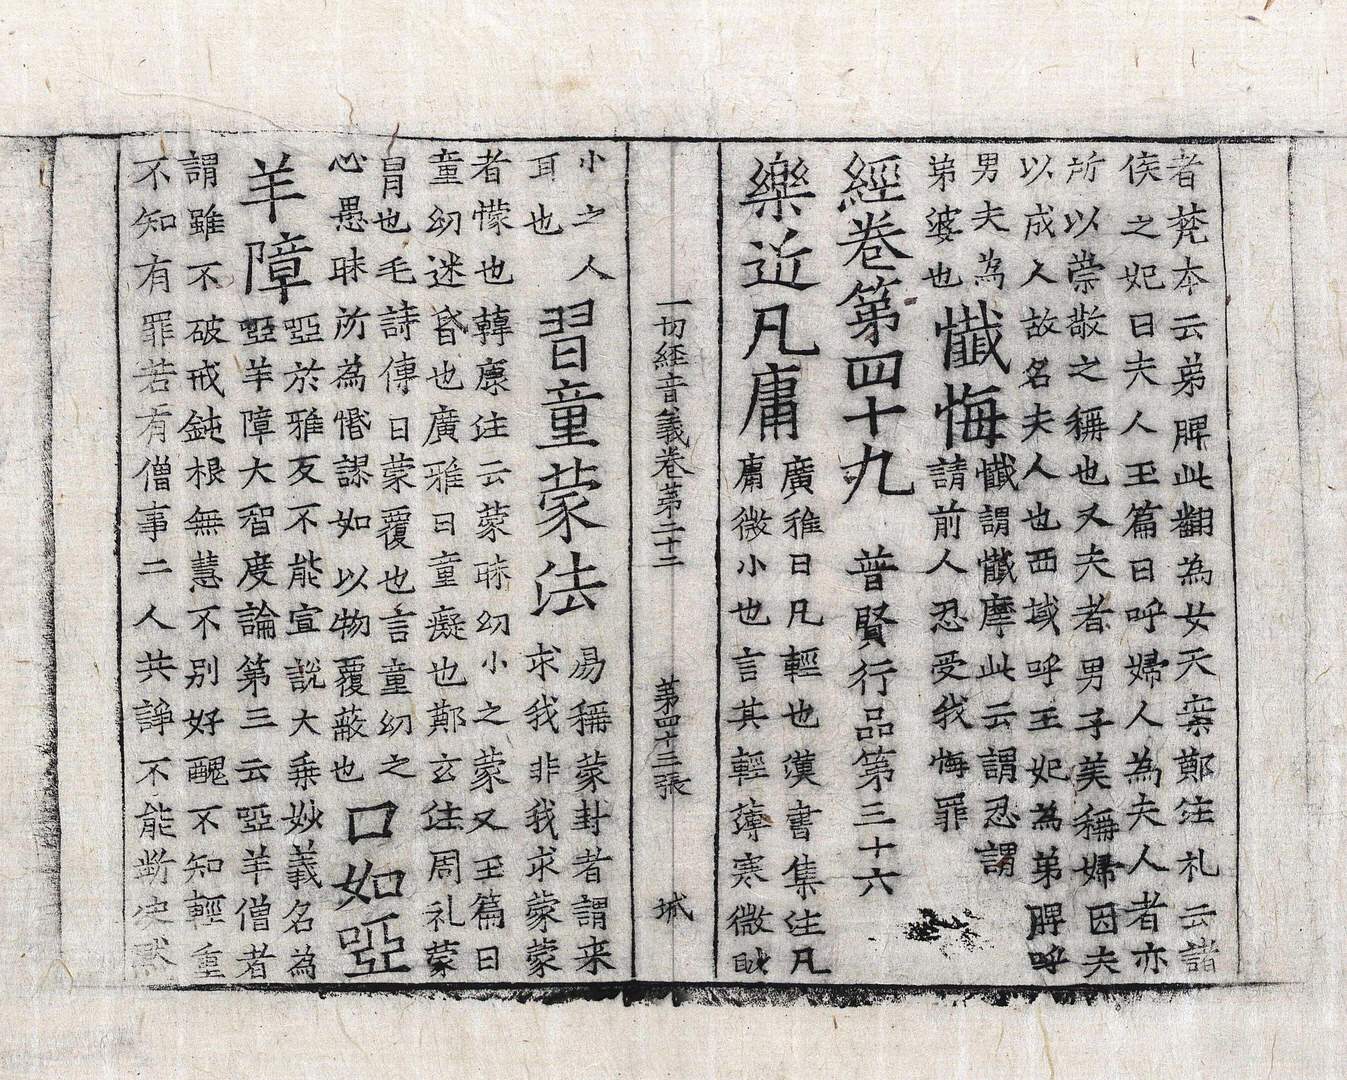 者梵本云弟脾此翻為女天案鄭注礼云諸
侯之妃曰夫人玉篇曰呼婦人為夫人者亦
所以崇敬之稱也又夫者男子美稱婦因夫
以成人故名夫人也西域呼王妃為弟脾呼
男夫為弟婆也
懺悔
懺謂懺摩此云謂忍謂
請前人忍受我悔罪
經卷第四十九 普賢行品第三十六
樂近凡庸
廣雅曰凡輕也漢書集注凡
庸微小也言其輕薄寒微
一切經音義卷第二十二 第四十三張
小之人耳也
習童蒙法
易稱蒙封者謂来
求我非我求蒙蒙
者懞也韓康注云蒙昧幼小之蒙又玉篇曰
童幼迷昏也廣雅曰童癡也鄭玄注周礼蒙
冒也毛詩傳曰蒙覆也言童幼之
心愚昧所為惛謬如以物覆蔽也
口如啞
羊障
啞於雅反不能宣說大乗妙義名為
啞羊障大智度論第三云啞羊僧者
謂雖不破戒鈍根無慧不別好醜不知輕重
不知有罪若有僧事二人共諍不能断決默